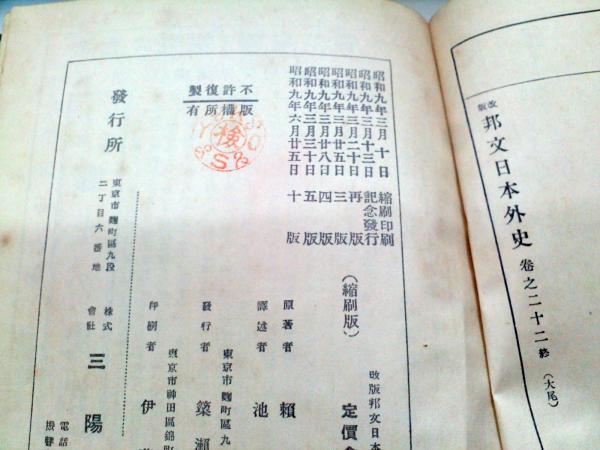 改版 邦文日本外史 卷之二十二 終 （大尾）
昭和九年三月十日 縮刷印刷
昭和九年三月十三日 記念發行
昭和九年三月二十日 再版
昭和九年三月廿五日 三版
昭和九年三月廿八日 四版
昭和九年三月三十日 五版
昭和九年六月廿五日 十版
不許復製
版權所有
檢
S&
改版邦文日本
定價
（縮刷版）
原著者 賴
譯述者 池
東京市麴町區九
發行者 築瀨
東京市神田區錦町
印刷者 伊
發行所
東京市麴町區九段
二丁目六番地
株式會社 三陽
電話